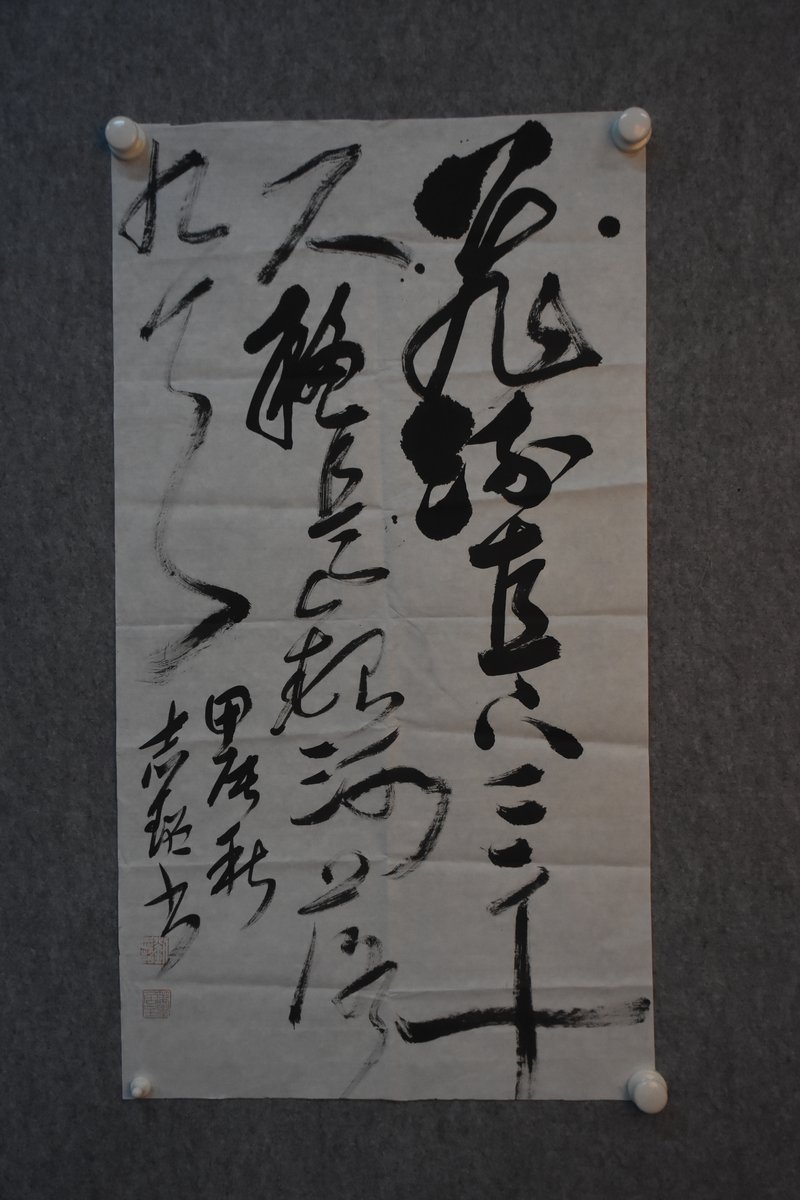 飛流直下三千
尺疑是銀河落
九天
甲辰秋
志鋥书